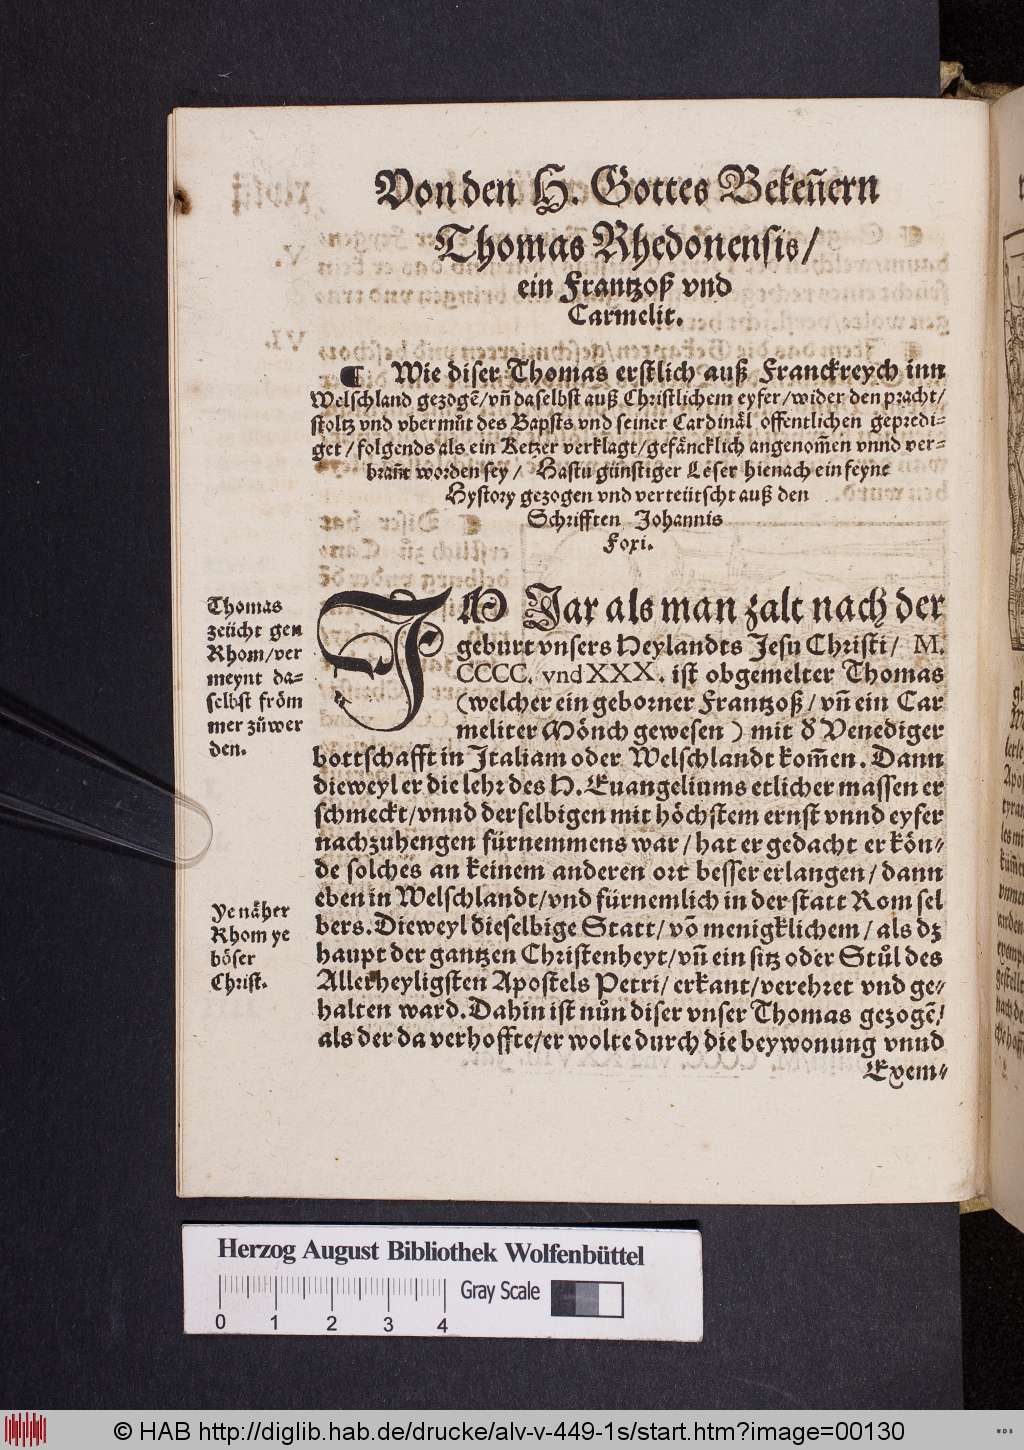 Von den H. Gottes Bekeñern
Thomas Rhedonensis/
ein Frantzoß vnd
Carmelit.
¶ Wie diser Thomas erstlich auß Franckreych inn
Welschland gezogẽ/vñ daselbst auß Christlichem eyfer/wider den pracht/
stoltz vnd vbermůt des Bapsts vnd seiner Cardinäl offentlichen gepredi-
get/folgends als ein Ketzer verklagt/gefäncklich angenom̃en vnnd ver-
brañt worden sey/ Hastu günstiger Leser hienach ein feyne
Hystory gezogen vnd verteütscht auß den
Schrifften Johannis
Foxi.
Thomas
zeücht gen
Rhom/ver
meynt da-
selbst fröm
mer zůwer
den.
IN Jar als man zalt nach der
geburt vnsers Heylandts Jesu Christi/ M.
CCCC. vnd XXX. ist obgemelter Thomas
(welcher ein geborner Frantzoß/vñ ein Car
meliter Mönch gewesen) mit d̕ Venediger
bottschafft in Italiam oder Welschlandt kom̃en. Dann
dieweyl er die lehr des H. Euangeliums etlicher massen er
schmeckt/vnnd derselbigen mit höchstem ernst vnnd eyfer
nachzuhengen fürnemmens war/hat er gedacht er kön-
de solches an keinem anderen ort besser erlangen/dann
eben in Welschlandt/vnd fürnemlich in der statt Rom sel
bers. Dieweyl dieselbige Statt/võ menigklichem/als dz
haupt der gantzen Christenheyt/vñ ein sitz oder Stůl des
Allerheyligsten Apostels Petri/erkant/verehret vnd ge-
halten ward. Dahin ist nůn diser vnser Thomas gezogẽ/
als der da verhoffte/er wolte durch die beywonung vnnd
Exem-
Ye näher
Rhom ye
böser
Christ.
Herzog August Bibliothek Wolfenbüttel
Gray Scale
0 1 2 3 4
© HAB http://diglib.hab.de/drucke/alv-v-449-1s/start.htm?image=00130